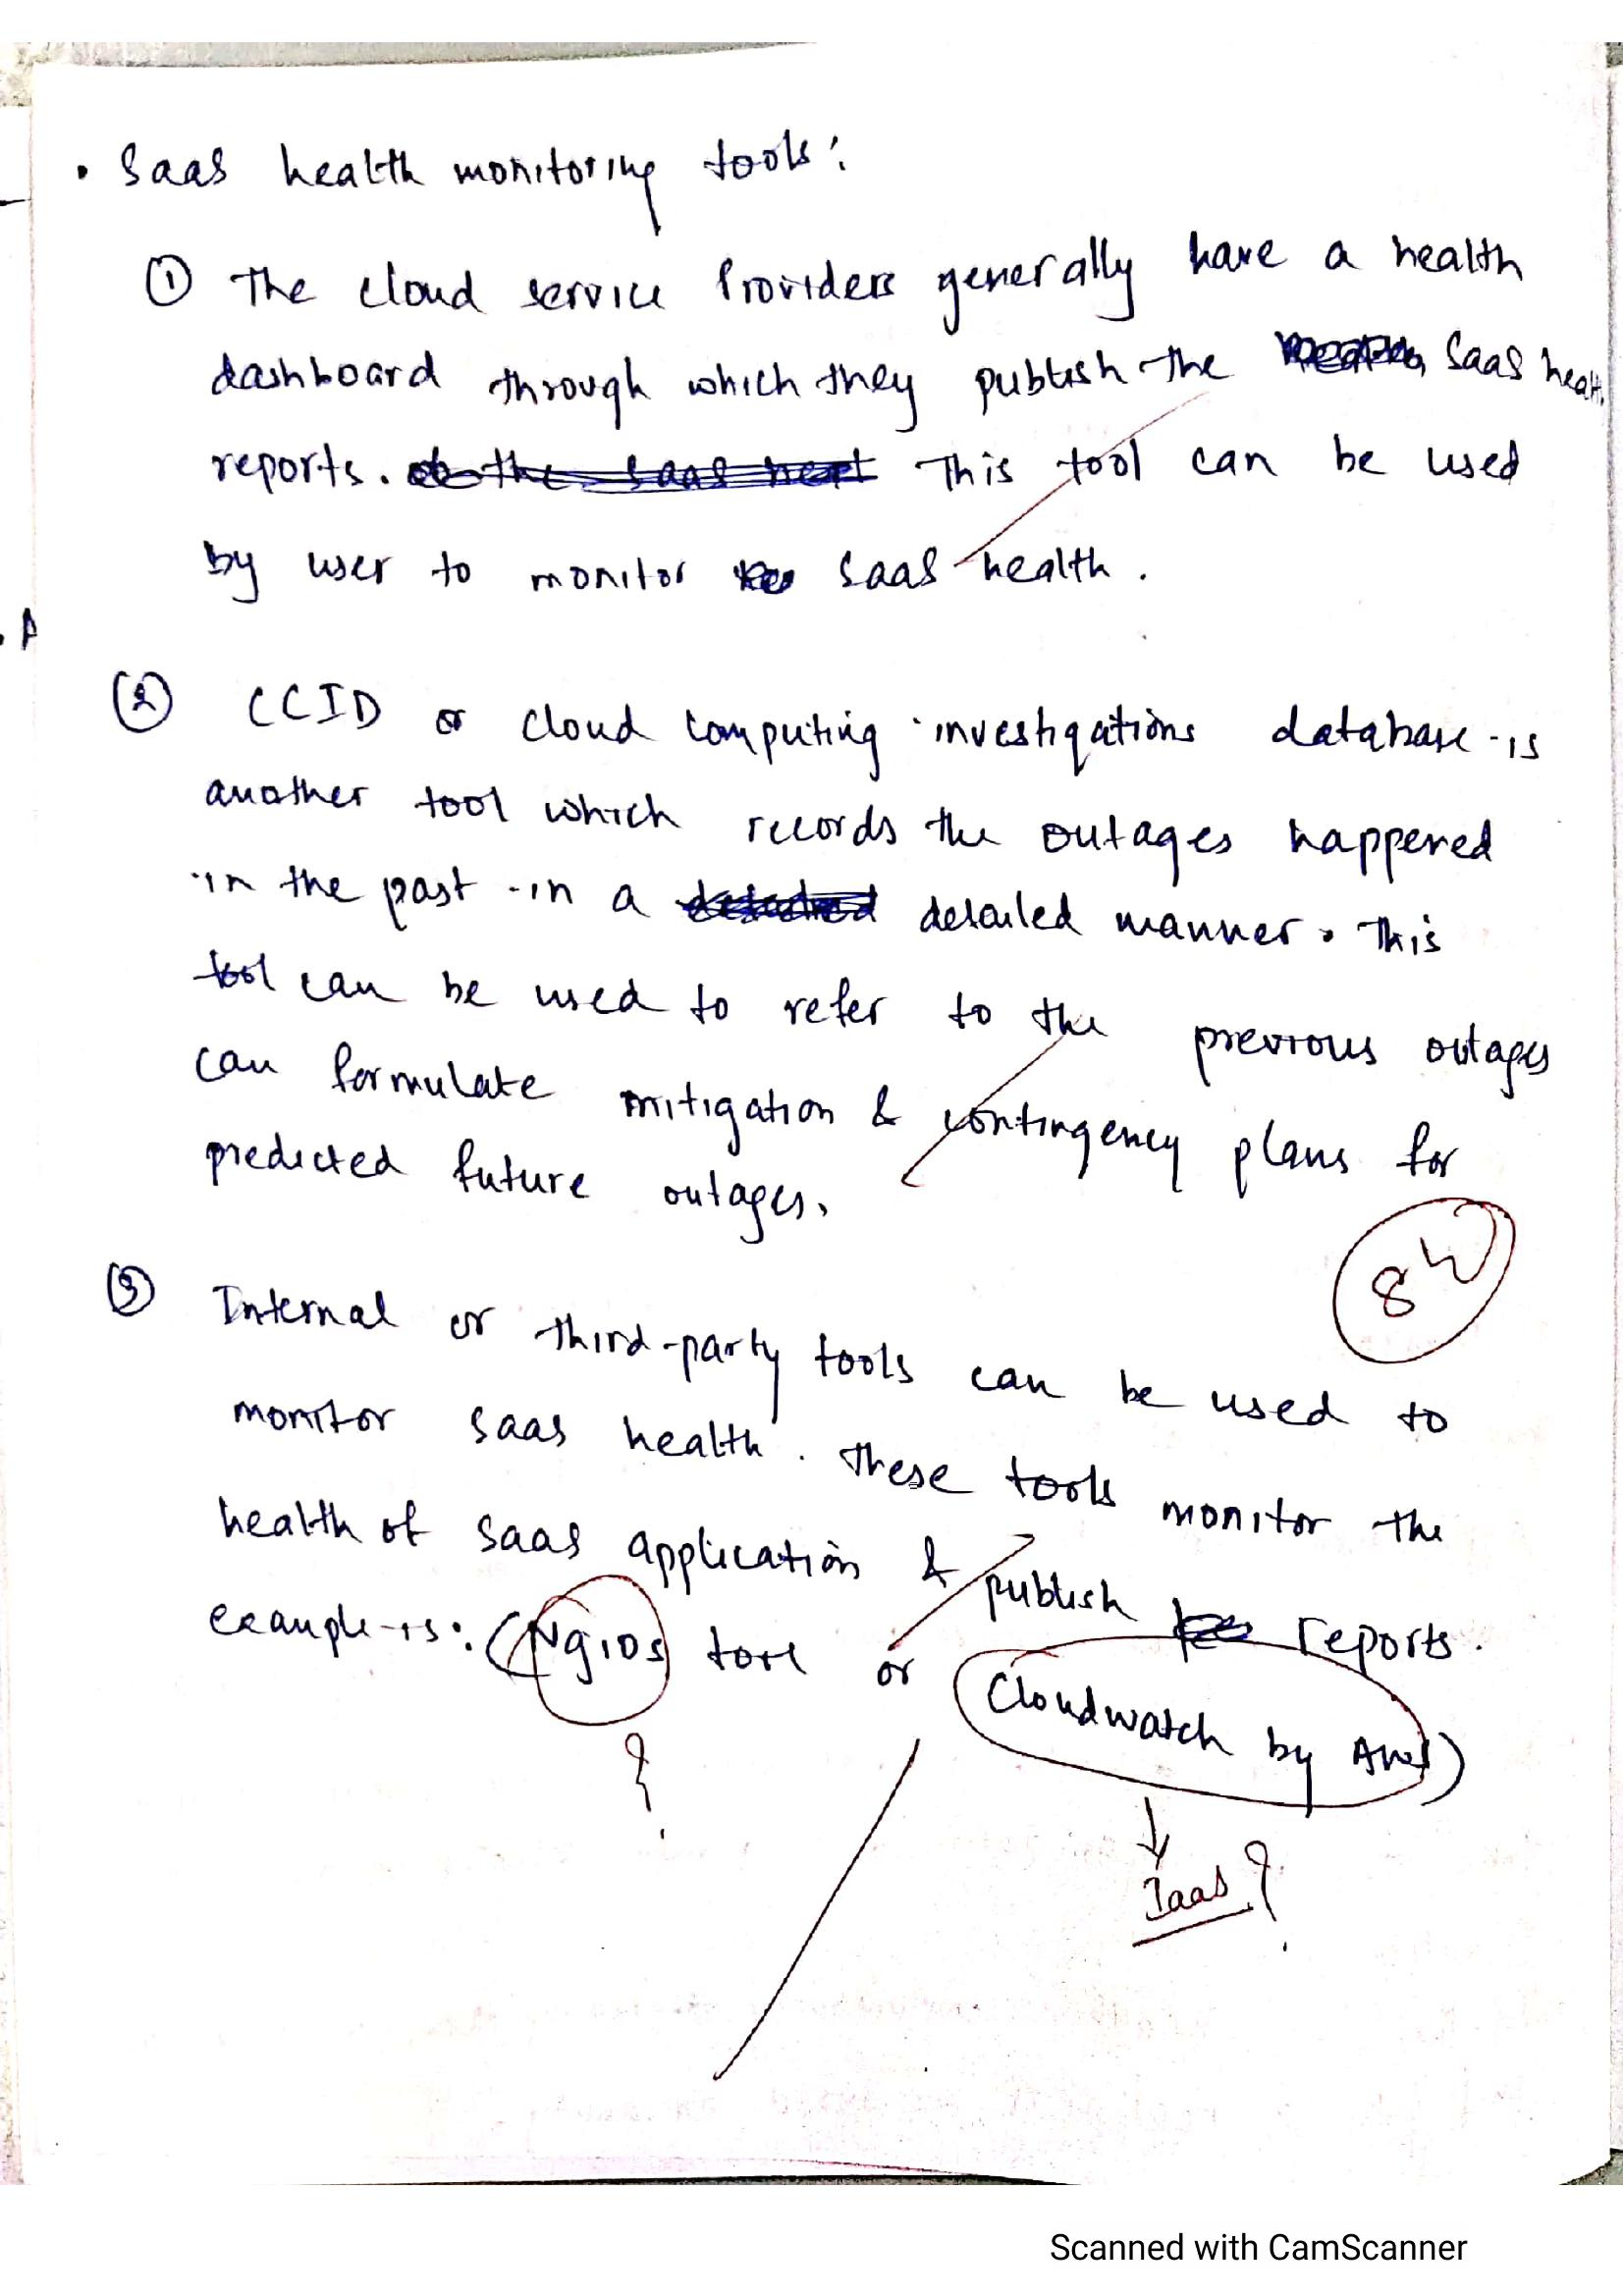 • Saas health monitoring tools:
① The cloud service Providers generally have a health
dashboard through which they publish the Saas healt
reports. This tool can be used
by user to monitor Saas health.
. A
② CCID or cloud computing investigations database is
another tool which records the outages happened
in the past in a detailed manner. This
tool can be used to refer to the previous outages
can formulate mitigation & contingency plans for
predicted future outages.
8
③ Internal or third-party tools can be used to
monitor saas health. These tools monitor the
health of saas application & publish reports.
example is: (Ngios tool or Cloudwatch by Aws)
?
↓
Iaas?
Scanned with CamScanner